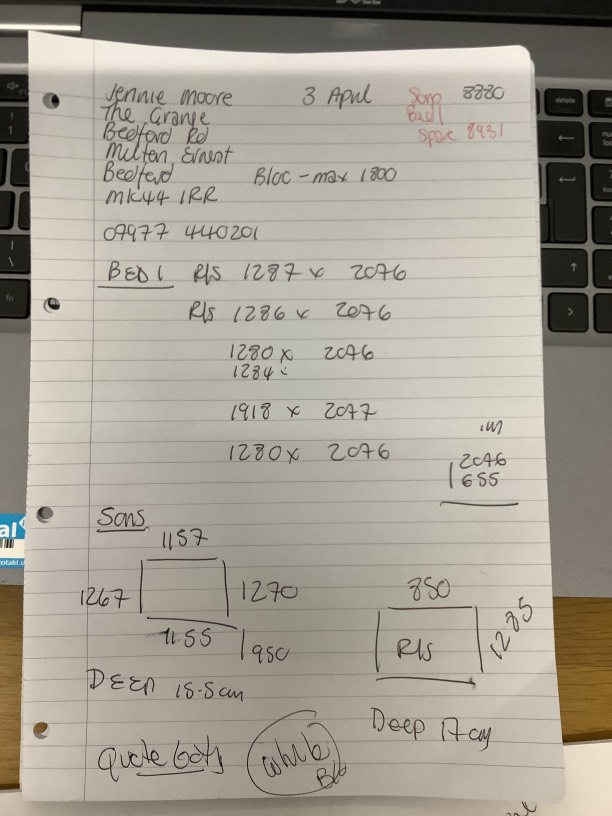 DELL
Jennie Moore 3 April 8880
The Grange Bed 1
Bedford Rd Spare 8931
Milton Ernest
Bedford Bloc - max 1800
MK44 1RR
07977 440201
BED 1 R/S 1287 x 2076
R/S 1286 x 2076
1280 x 2076
1284
1918 x 2077
1280 x 2076
2046
1655
Sons
1157
1267 1270
1155 1950
DEEP 15.5cm
850
R/S 1285
Deep 17cm
Quote both White
delete